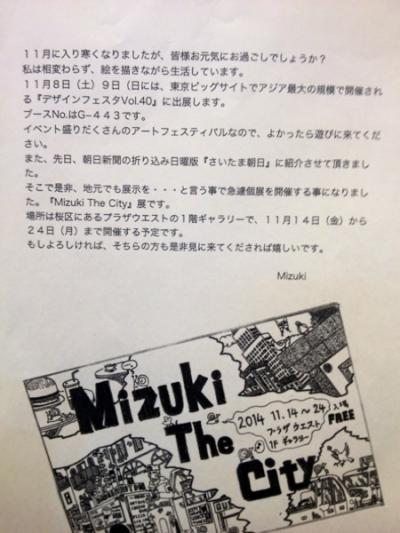 11月に入り寒くなりましたが、皆様お元気にお過ごしでしょうか？
私は相変わらず、絵を描きながら生活しています。
11月8日（土）9日（日には、東京ビッグサイトでアジア最大の規模で開催され
る『デザインフェスタVol.40』に出展します。
ブースNo.はG−443です。
イベント盛りだくさんのアートフェスティバルなので、よかったら遊びに来てくだ
さい。
また、先日、朝日新聞の折り込み日曜版『さいたま朝日』に紹介させて頂きまし
た。
そこで是非、地元でも展示を・・・と言う事で急遽個展を開催する事になりまし
た。『Mizuki The City』展です。
場所は桜区にあるプラザウエストの1階ギャラリーで、11月14日（金）から
24日（月）まで開催する予定です。
もしよろしければ、そちらの方も是非見に来てくだされば嬉しいです。
Mizuki
Mizuki
The
City
2014 11.14〜24
プラザウエスト
1F ギャラリー
入場
FREE